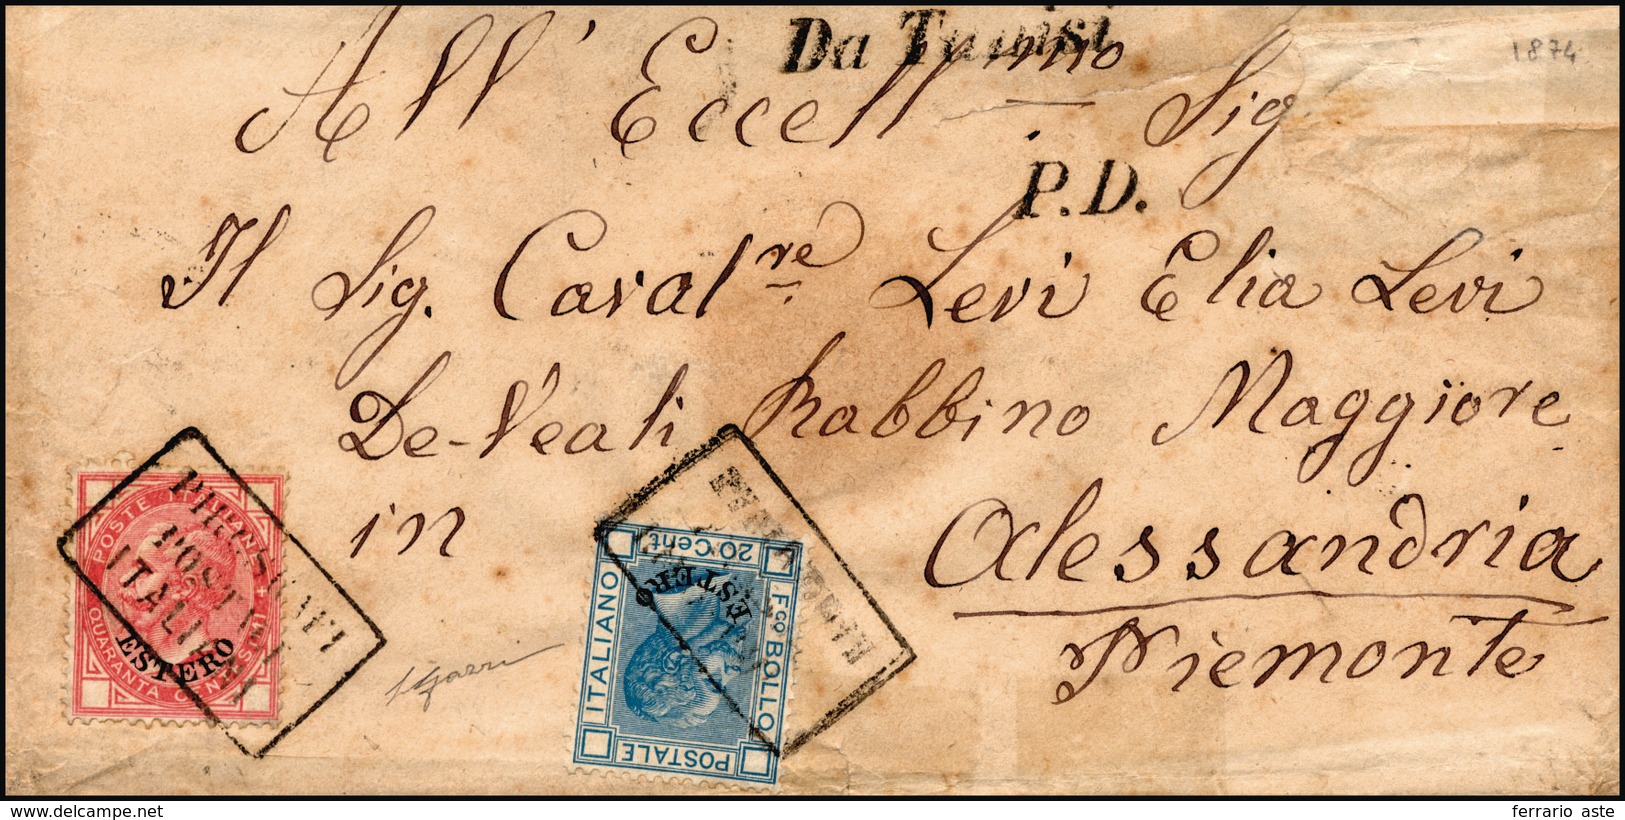 Da Tunisi
1874
All' Eccell.mo Sig
P.D.
Il Sig. Caval.re Levi Elia Levi
De-Veali Rabbino Maggiore
in Alessandria
Piemonte
POSTE ITALIANE
QUARANTA CENTESIMI
ESTERO
PIROSCAFI
POSTALI
ITALIANI
20 Cent
Fco BOLLO
POSTALE
ITALIANO
ESTERO
PIROSCAFI
ferrario aste